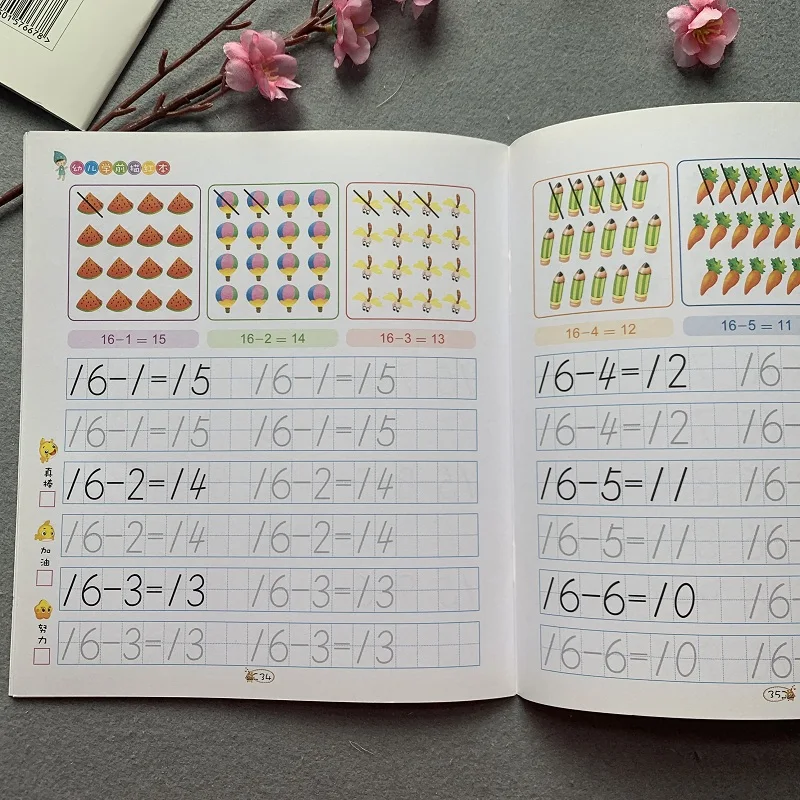 幼儿学前描红本
16-1=15
16-2=14
16-3=13
16-1=15 16-1=15
16-1=15 16-1=15
16-2=14 16-2=14
16-2=14 16-2=14
16-3=13 16-3=13
16-3=13 16-3=13
真棒
加油
努力
34
16-4=12
16-5=11
16-4=12 16-
16-4=12 16-
16-5=11 16-
16-5=11 16-
16-6=10 16-
16-6=10 16-
35